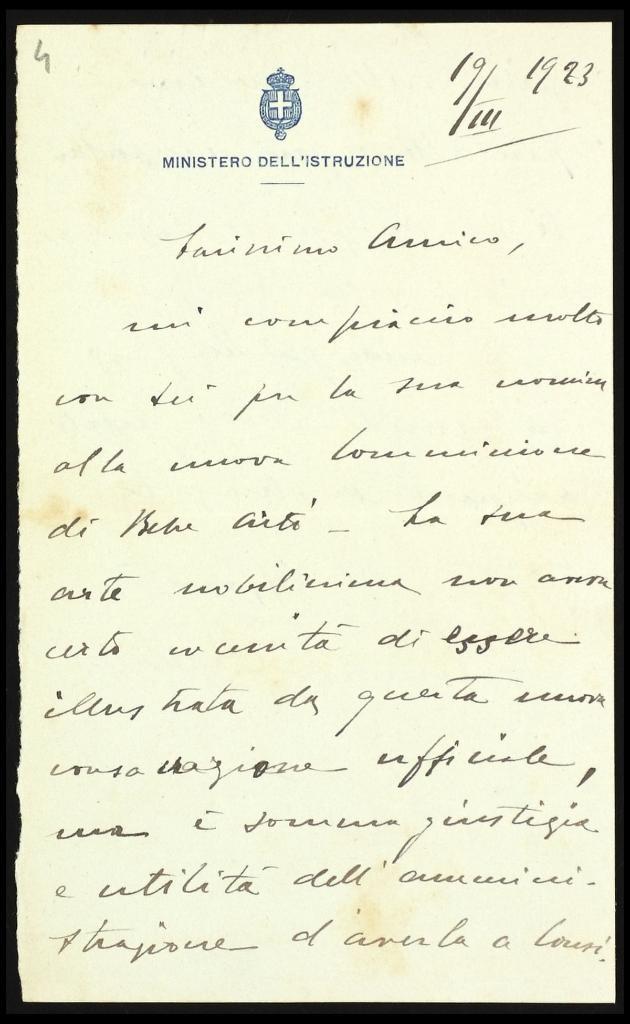 4
19/III 1923
MINISTERO DELL'ISTRUZIONE
Carissimo Amico,
mi compiaccio molto
con Lei per la sua nomina
alla nuova Commissione
di Belle Arti – La sua
arte nobilissima non aveva
certo necessità di essere
illustrata da questa nuova
consacrazione ufficiale,
ma è somma giustizia
e utilità dell'ammini-
strazione d'averla a Consi-